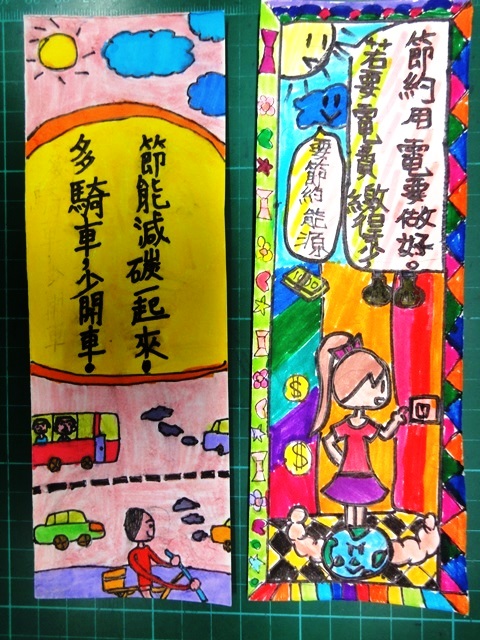 節能減碳一起來。
多騎車。少開車。
節約用電要做好。
若要電費繳很少
要節約能源
$
$